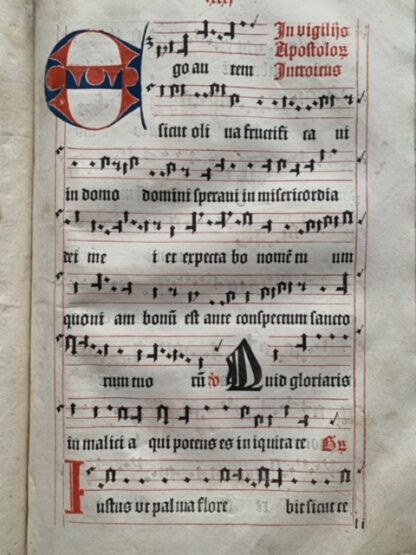 xxxi
In vigilijs
Apostoloꝝ
Introitus
Ego au tem
sicut oli ua fructifi ca ui
in domo domini speraui in misericordia
dei me i et expecta bo nomē tu um
quoni am bonū est ante conspectum sancto
rum tuo rū ꝟ Quid gloriaris
in malici a qui potens es in iniquita te Gꝝ
Iustus vt palma flore bit sicut ce